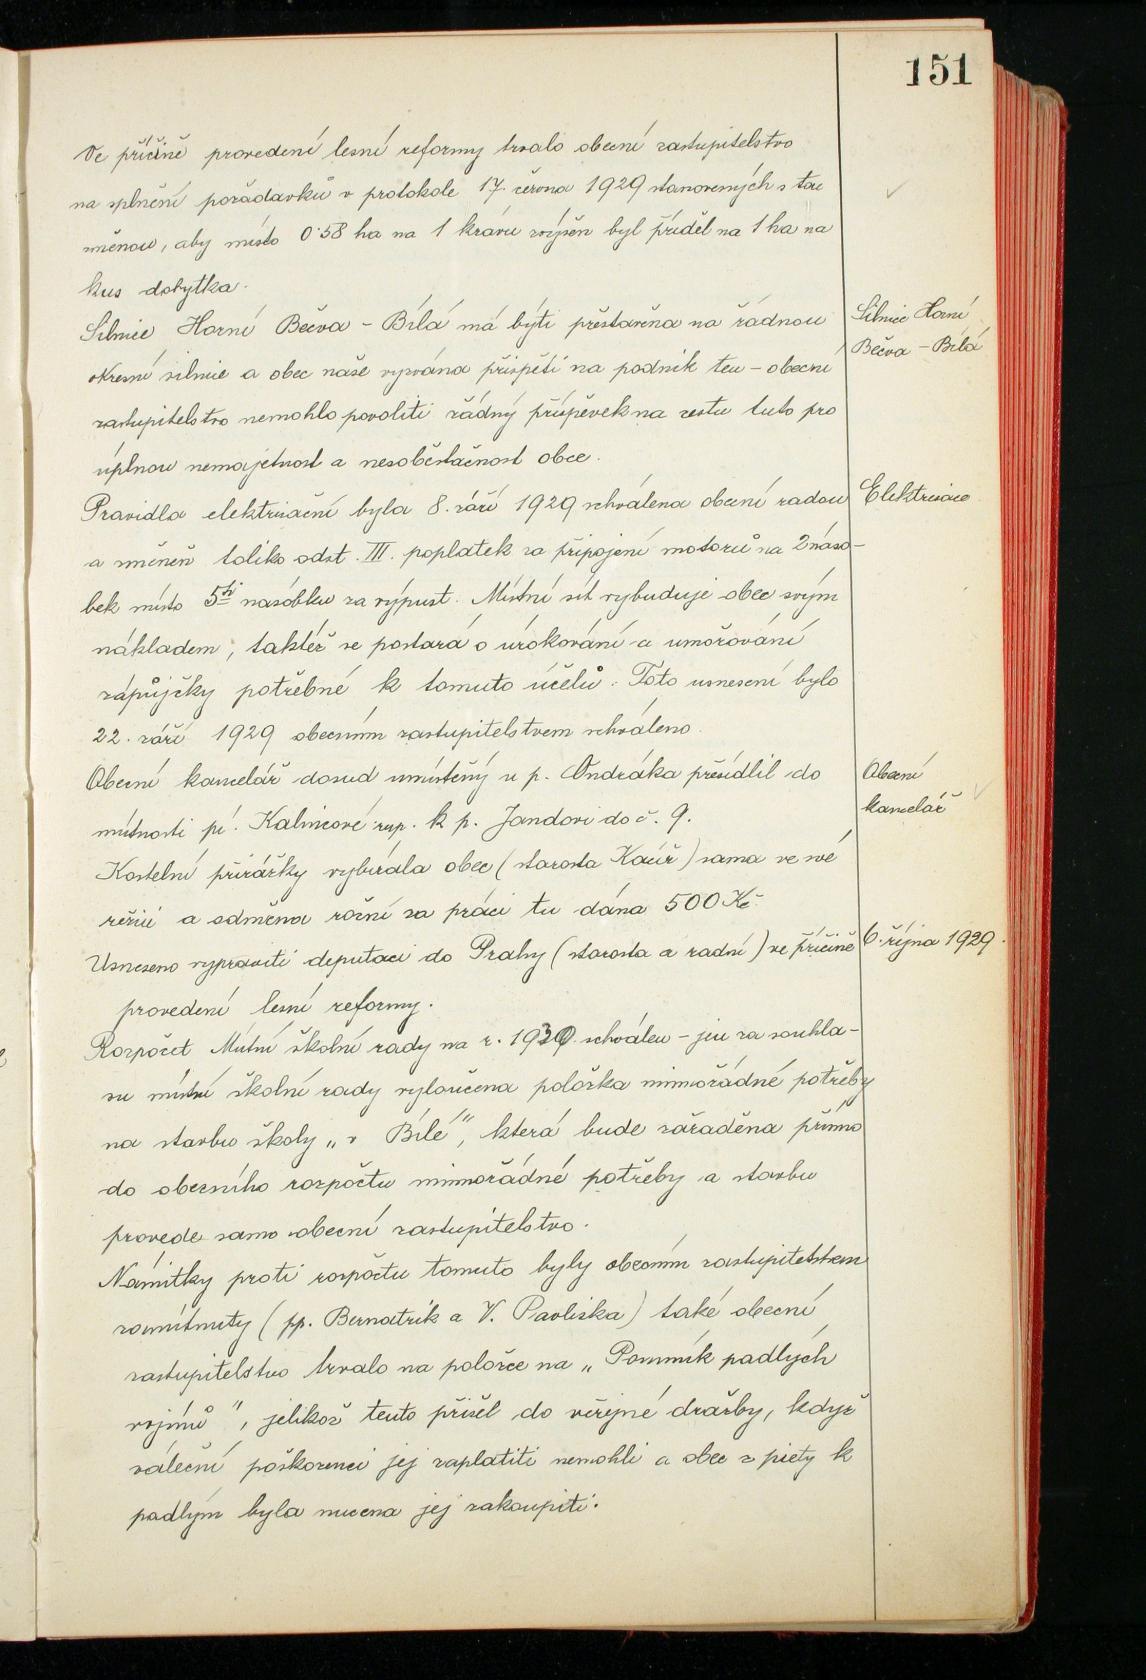 151
Ve příčině provedení lesní reformy trvalo obecní zastupitelstvo
na splnění požadavků v protokole 17. června 1929 stanovených s tou
změnou, aby místo 0·58 ha na 1 krávu zvýšen byl příděl na 1 ha na
kus dobytka.
Silnice Horní
Bečva – Bílá
Silnice Horní Bečva – Bílá má býti přestavěna na řádnou
okresní silnici a obec naše vyzvána přispěti na podnik ten – obecní
zastupitelstvo nemohlo povoliti žádný příspěvek na cestu tuto pro
úplnou nemajetnost a nesoběstačnost obce.
Elektrisace
Pravidla elektrisační byla 8. září 1929 schválena obecní radou
a změněn toliko odst. III. poplatek za připojení motorů na 2náso-
bek místo 5ti násobku za výpust. Místní síť vybuduje obec svým
nákladem, taktéž se postará o úrokování a umořování
zápůjčky potřebné k tomuto účelů. Toto usnesení bylo
22. září 1929 obecním zastupitelstvem schváleno.
Obecní
kancelář
Obecní kancelář dosud umístěný u p. Ondráka přesídlil do
místnosti pí. Kalincové resp. k p. Jandovi do č. 9.
Kostelní přirážky vybírala obec (starosta Kacíř) sama ve své
režii a odměna roční za práci tu dána 500 Kč.
6. října 1929.
Usneseno vypraviti deputaci do Prahy (starosta a radní) ve příčině
provedení lesní reformy.
Rozpočet Místní školní rady na r. 1930 schválen – jen za souhla-
su místní školní rady vyloučena položka mimořádné potřeby
na stavbu školy „v Bílé", která bude zařaděna přímo
do obecního rozpočtu mimořádné potřeby a stavbu
provede samo obecní zastupitelstvo.
Námitky proti rozpočtu tomuto byly obecním zastupitelstvem
zamítnuty (pp. Bernatík a V. Pavliska) také obecní
zastupitelstvo trvalo na položce na „Pomník padlých
vojínů", jelikož tento přišel do veřejné dražby, když
váleční poškozenci jej zaplatiti nemohli a obec z piety k
padlým byla nucena jej zakoupiti.